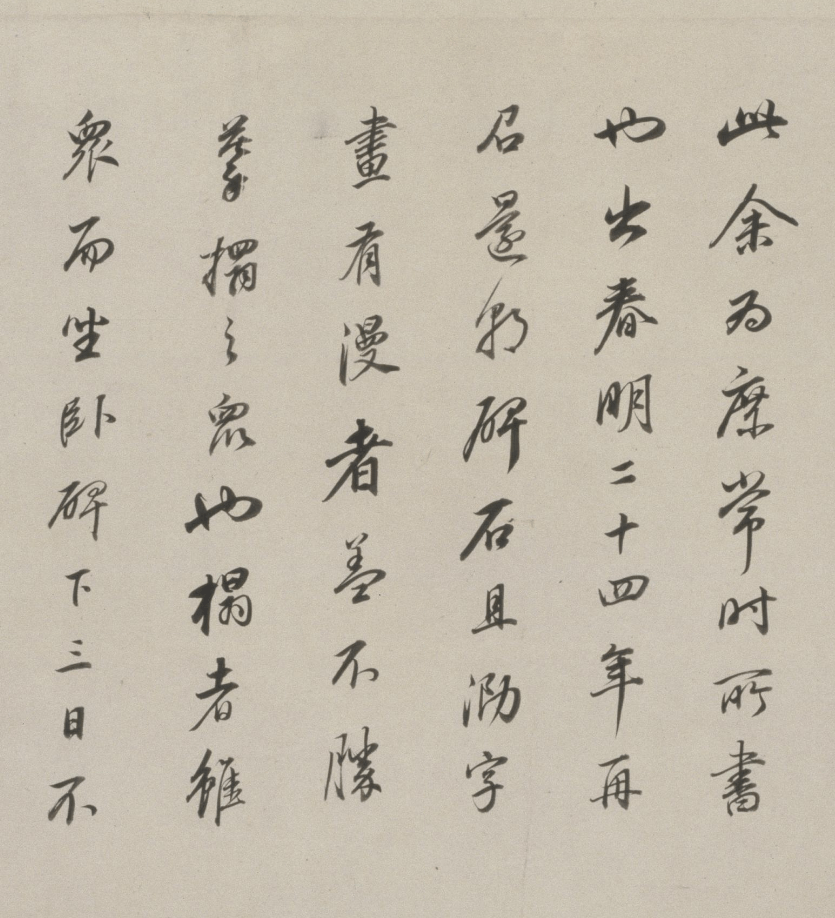 此余為庶常時所書
也出春明二十四年再
召還朝碑石且泐字
畫有漫者蓋不勝
摹搨之衆也榻者雖
衆而坐臥碑下三日不